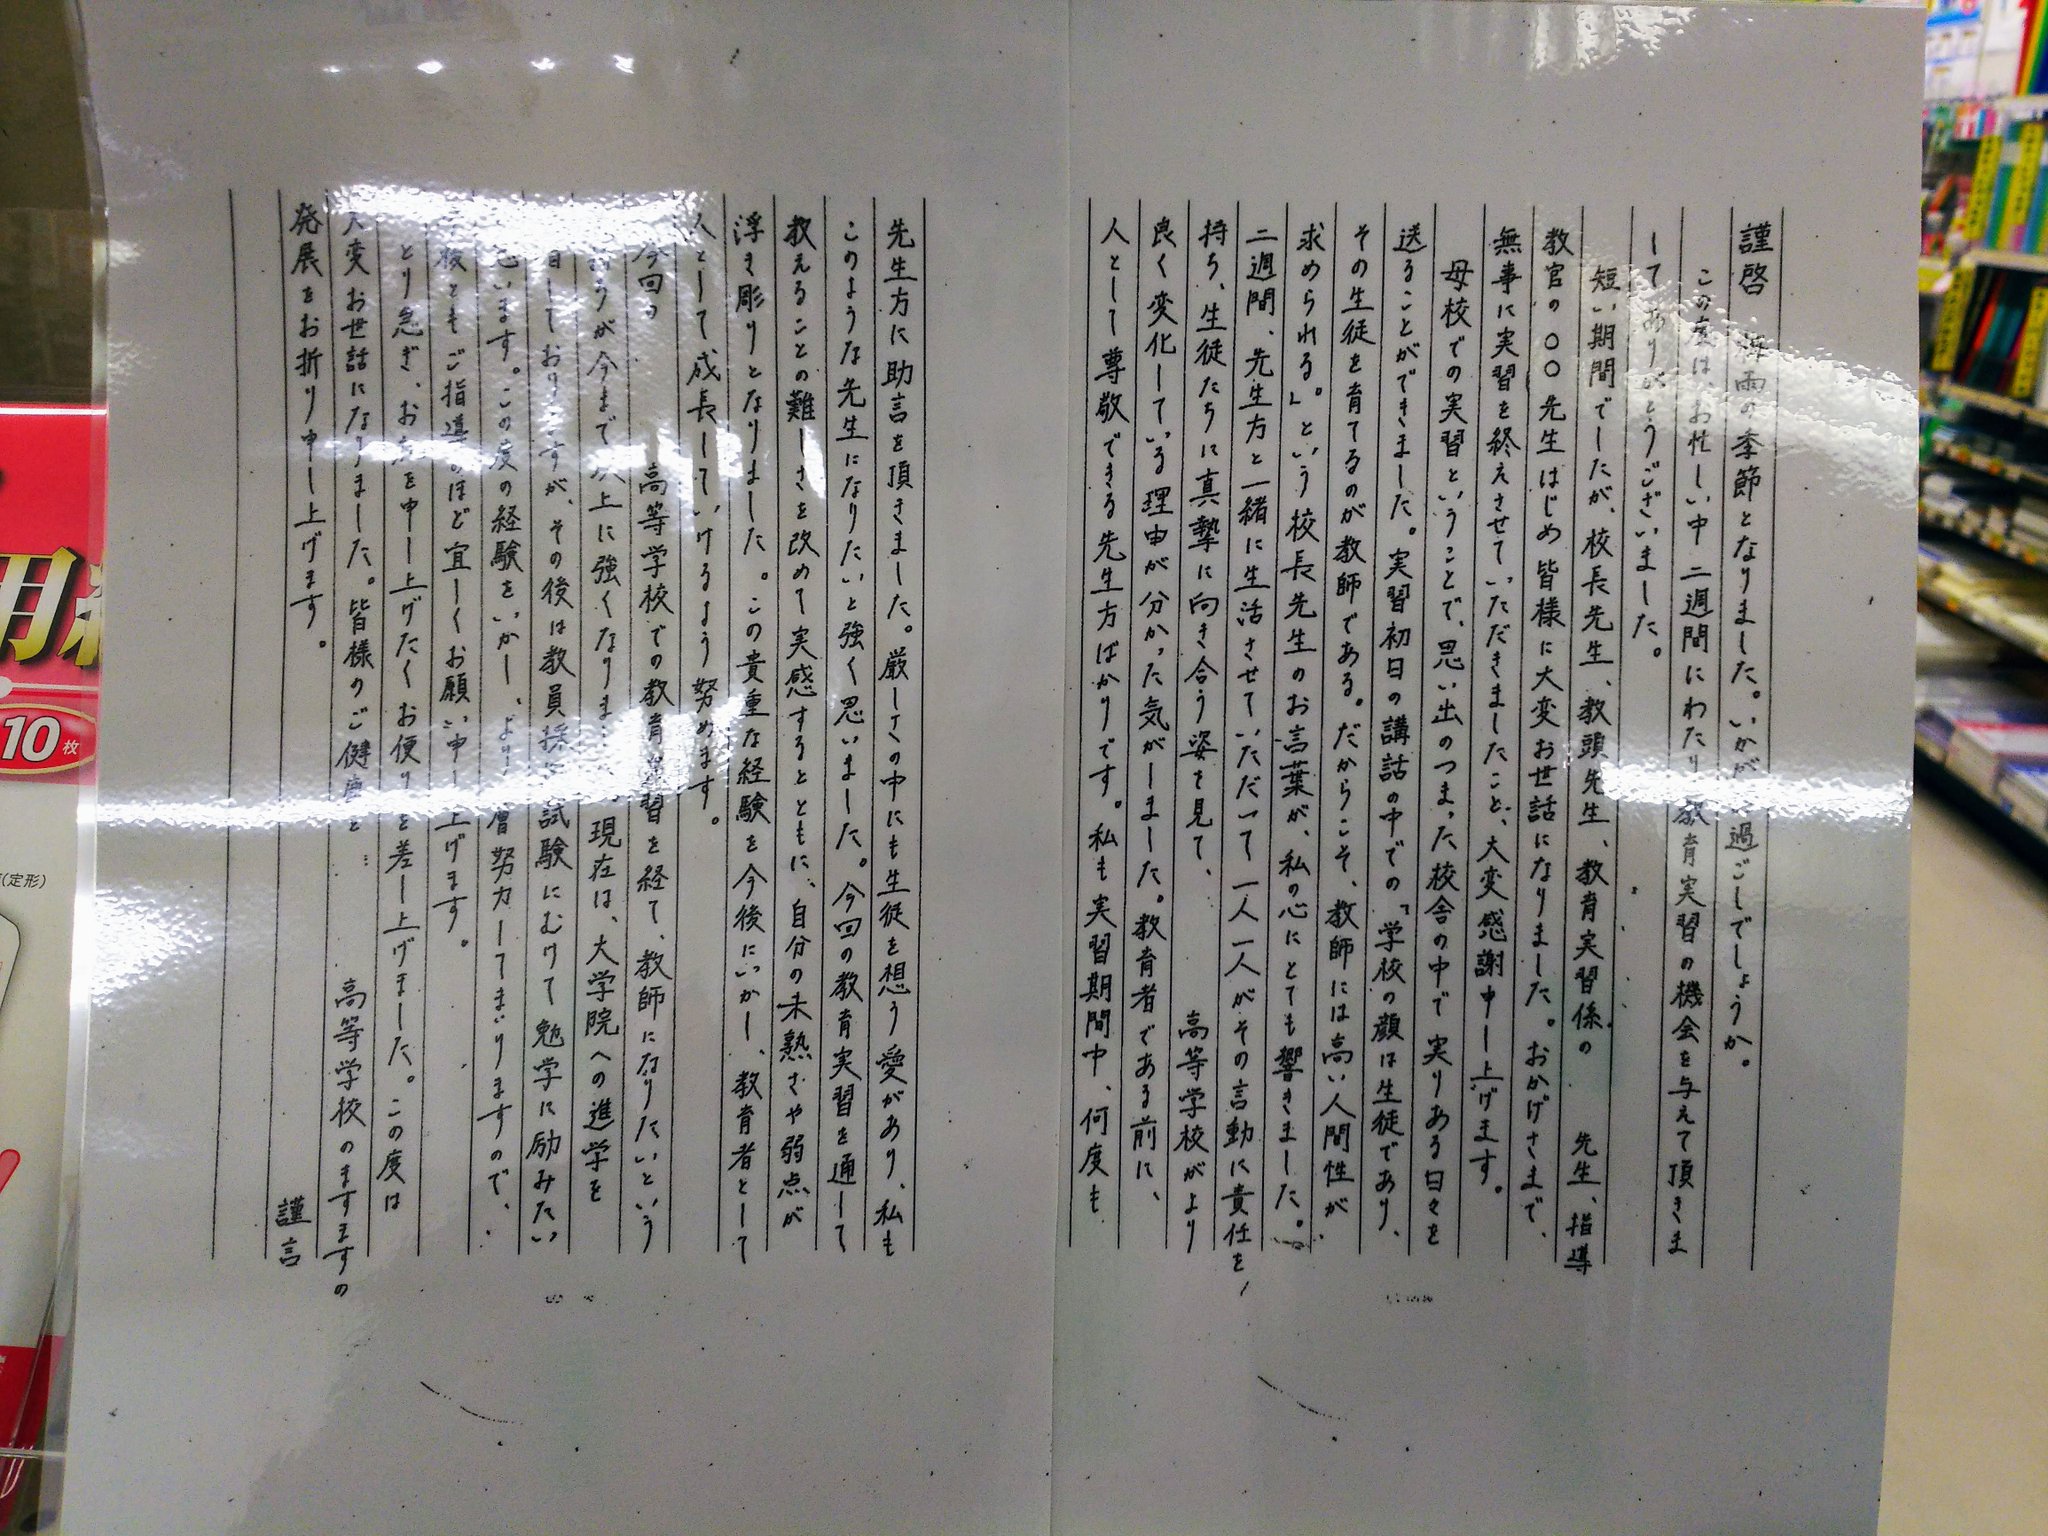 謹啓 梅雨の季節となりました。いかが過ごしでしょうか。
この度は、お忙しい中二週間にわたり教育実習の機会を与えて頂きま
してありがとうございました。
短い期間でしたが、校長先生、教頭先生、教育実習係の 先生、指導
教官の〇〇先生はじめ皆様に大変お世話になりました。おかげさまで、
無事に実習を終えさせていただきましたこと、大変感謝申し上げます。
母校での実習ということで、思い出のつまった校舎の中で実りある日々を
送ることができました。実習初日の講話の中での「学校の顔は生徒であり、
その生徒を育てるのが教師である。だからこそ、教師には高い人間性が
求められる。」という校長先生のお言葉が、私の心にとても響きました。
二週間、先生方と一緒に生活させていただいて一人一人がその言動に責任を
持ち、生徒たちに真摯に向き合う姿を見て、 高等学校がより
良く変化している理由が分かった気がしました。教育者である前に、
人として尊敬できる先生方ばかりです。私も実習期間中、何度も
先生方に助言を頂きました。厳しさの中にも生徒を想う愛があり、私も
このような先生になりたいと強く思いました。今回の教育実習を通して
教えることの難しさを改めて実感するとともに、自分の未熟さや弱点が
浮き彫りとなりました。この貴重な経験を今後にいかし、教育者として
人として成長していけるよう努めます。
今回の 高等学校での教育実習を経て、教師になりたいという
が今まで以上に強くなりま 現在は、大学院への進学を
しておりますが、その後は教員採 試験にむけて勉学に励みたい
います。この度の経験をいかし、より 層努力してまいりますので、
後ともご指導のほど宜しくお願い申し上げます。
とり急ぎ、お を申し上げたくお便りを差し上げました。この度は
大変お世話になりました。皆様のご健康と 高等学校のますますの
発展をお折り申し上げます。
謹言
10枚
(定形)